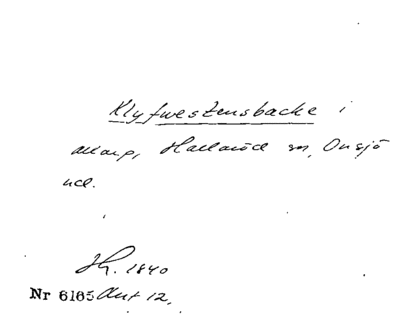 Klyfwestensbacke i
Allarp, Hallaröd sn, Onsjö
hd.
1840
Nr 6165 Ant 12.